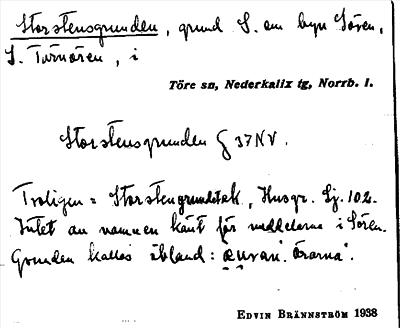 Storstensgrunden, grund S. om byn Sören,
S. Turnören, i
Töre sn, Nederkalix tg, Norrb. l.
Storstensgrunden § 37 NV.
Troligen = Storstengrundstek, Husgr. Sj. 102.
Intet av namnen känt för meddelarna i Sören.
Grunden kallas ibland: öuvan. örarna.
EDVIN BRÄNNSTRÖM 1938